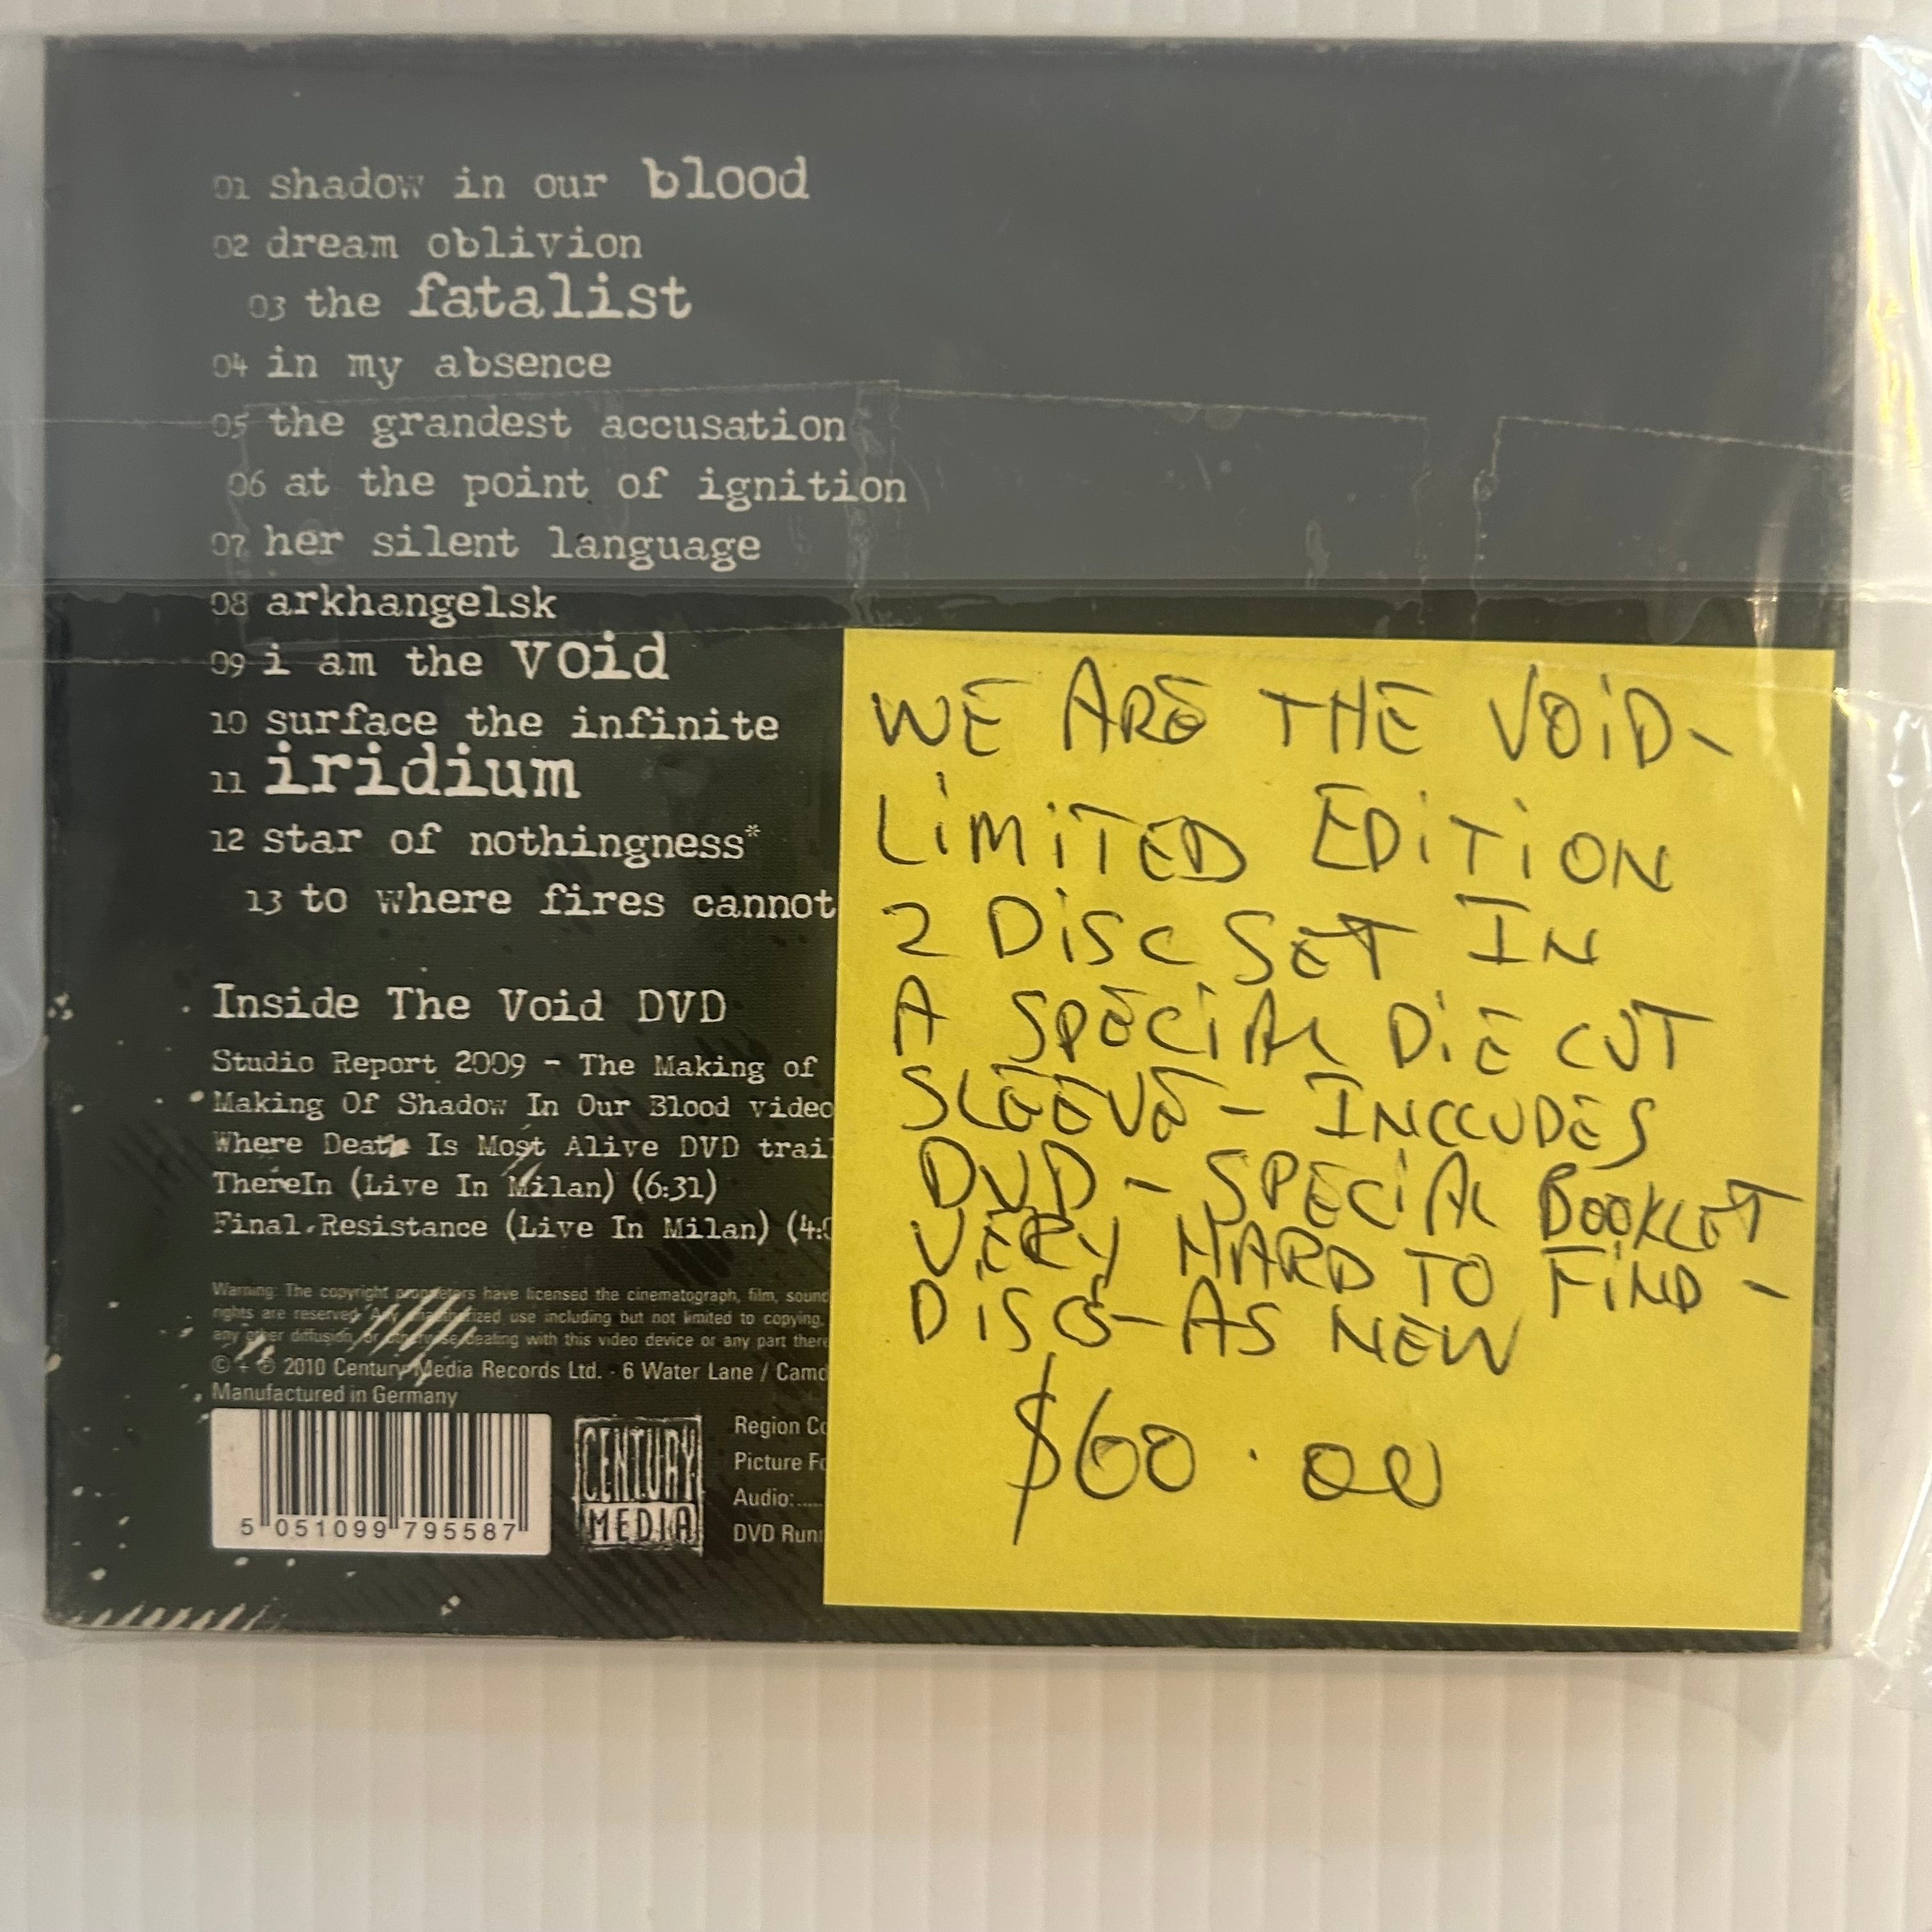 01 shadow in our blood
02 dream oblivion
03 the fatalist
04 in my absence
05 the grandest accusation
06 at the point of ignition
07 her silent language
08 arkhangelsk
09 i am the void
10 surface the infinite
11 iridium
12 star of nothingness*
13 to where fires cannot
Inside The Void DVD
Studio Report 2009 - The Making of
Making Of Shadow In Our Blood video
Where Death Is Most Alive DVD trail
ThereIn (Live In Milan) (6:31)
Final Resistance (Live In Milan) (4:
Warning: The copyright proprietors have licensed the cinematograph, film, sound
rights are reserved. Any unauthorized use including but not limited to copying,
any other diffusion, or otherwise dealing with this video device or any part there
© + ℗ 2010 Century Media Records Ltd. · 6 Water Lane / Camd
Manufactured in Germany
5 051099 795587
CENTURY
MEDIA
Region Co
Picture Fo
Audio:.....
DVD Runn
WE ARE THE VOiD-
LiMiTED EDiTiON
2 DiSC SET IN
A SPECiAL DiE CUT
SLEEVE - INCLUDES
DVD - SPECiAL BOOKLET
VERY HARD TO FiND -
DiSCS-AS NEW
$60.00